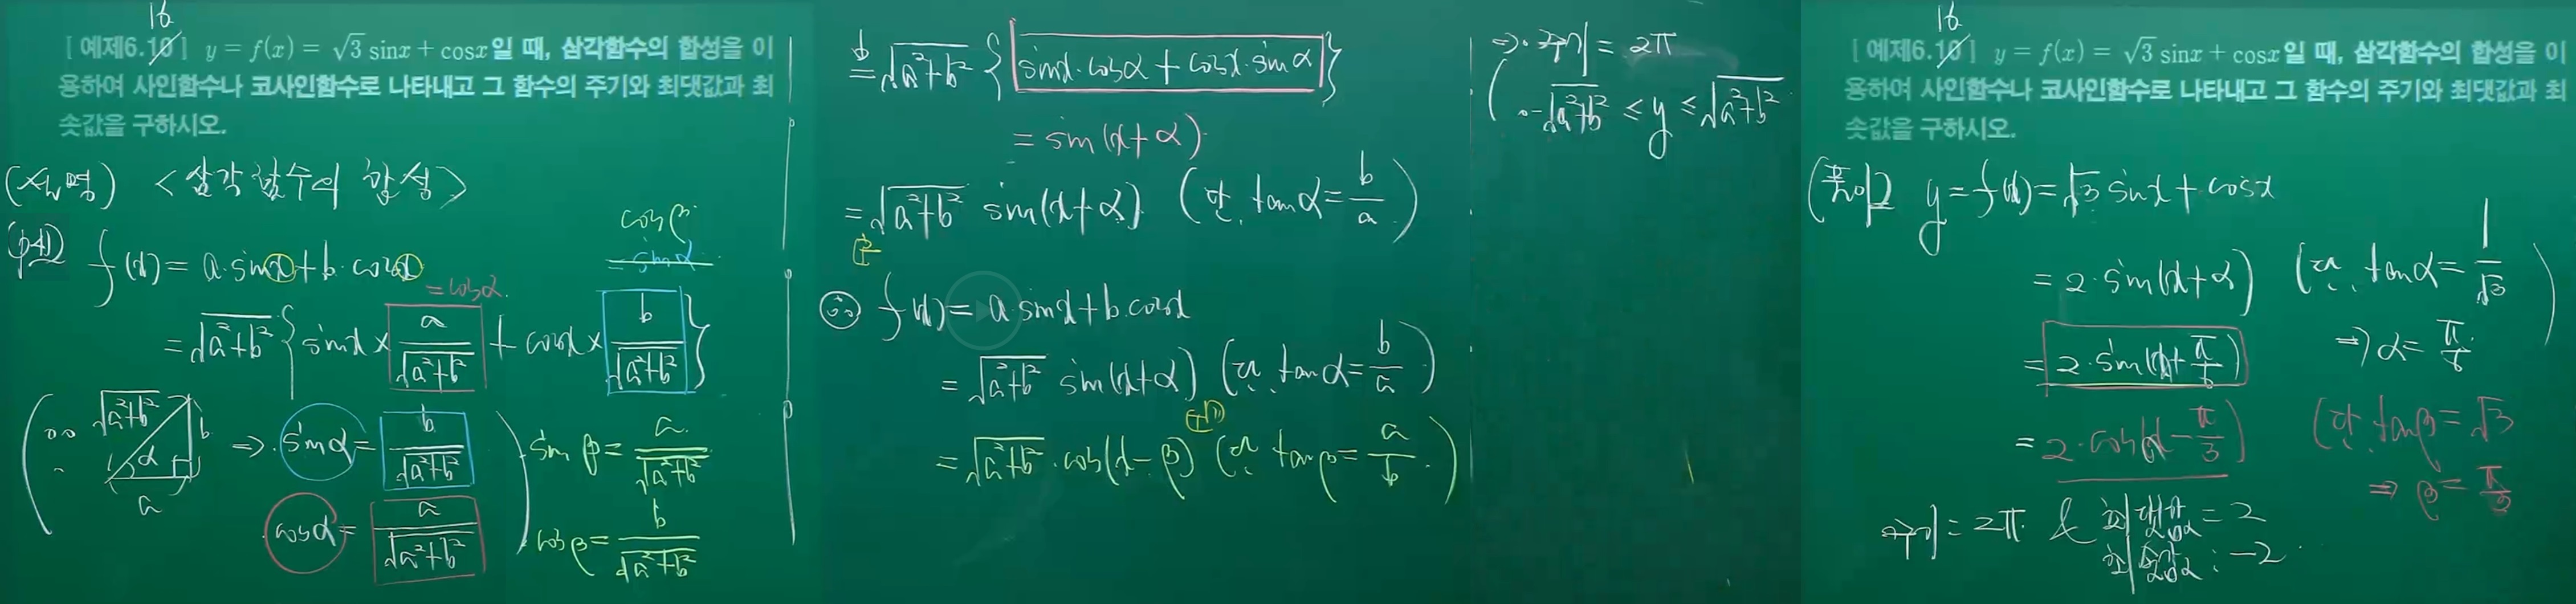 16
[예제6.10] y = f(x) = √3 sinx + cosx일 때, 삼각함수의 합성을 이
용하여 사인함수나 코사인함수로 나타내고 그 함수의 주기와 최댓값과 최
솟값을 구하시오.
(설명) <삼각함수의 합성>
f(x) = a·sinx + b·cosx
= √(a²+b²) { sinx × a/√(a²+b²) + cosx × b/√(a²+b²) }
= cosα
cosβ
= sinα
( ∵ √(a²+b²) α a b ⇒ sinα = b/√(a²+b²)
cosα = a/√(a²+b²) )
sinβ = a/√(a²+b²)
cosβ = b/√(a²+b²)
= √(a²+b²) { sinx·cosα + cosx·sinα }
= sin(x+α)
= √(a²+b²) sin(x+α) (단, tanα = b/a)
f(x) = a sinx + b·cosx
= √(a²+b²) sin(x+α) (단, tanα = b/a)
= √(a²+b²)·cos(x−β) (단, tanβ = a/b)
⇒ 주기 = 2π
−√(a²+b²) ≤ y ≤ √(a²+b²)
16
[예제6.10] y = f(x) = √3 sinx + cosx일 때, 삼각함수의 합성을 이
용하여 사인함수나 코사인함수로 나타내고 그 함수의 주기와 최댓값과 최
솟값을 구하시오.
(풀이) y = f(x) = √3 sinx + cosx
= 2·sin(x+α) (단, tanα = 1/√3
⇒ α = π/6)
= 2·sin(x+π/6)
= 2·cos(x−π/3) (단, tanβ = √3
⇒ β = π/3
주기 = 2π & 최댓값 = 2
최솟값 : −2